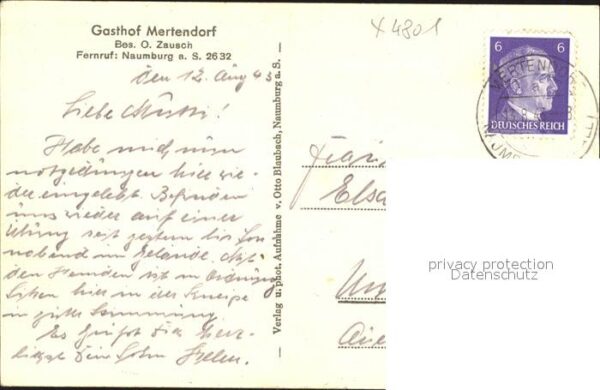 Gasthof Mertendorf
Bes. O. Zausch
Fernruf: Naumburg a. S. 2632
X 4801
6 6
DEUTSCHES REICH
MERTENDORF
den 12. Aug 43
Liebe Mutti!
Habe mich nun
notgedrungen hier wie-
der eingelebt. Befinden
uns wieder auf einer
Übung seit gestern bis Son
nabend im Gelände. Mit
den Hemden ist in Ordnung
Sitzen hier in der Kneipe
in guter Stimmung
Es grüßt Dich herz-
lichst Dein Sohn
Verlag u. phot. Aufnahme v. Otto Blaubach, Naumburg a. S.
Frau
privacy protection
Datenschutz